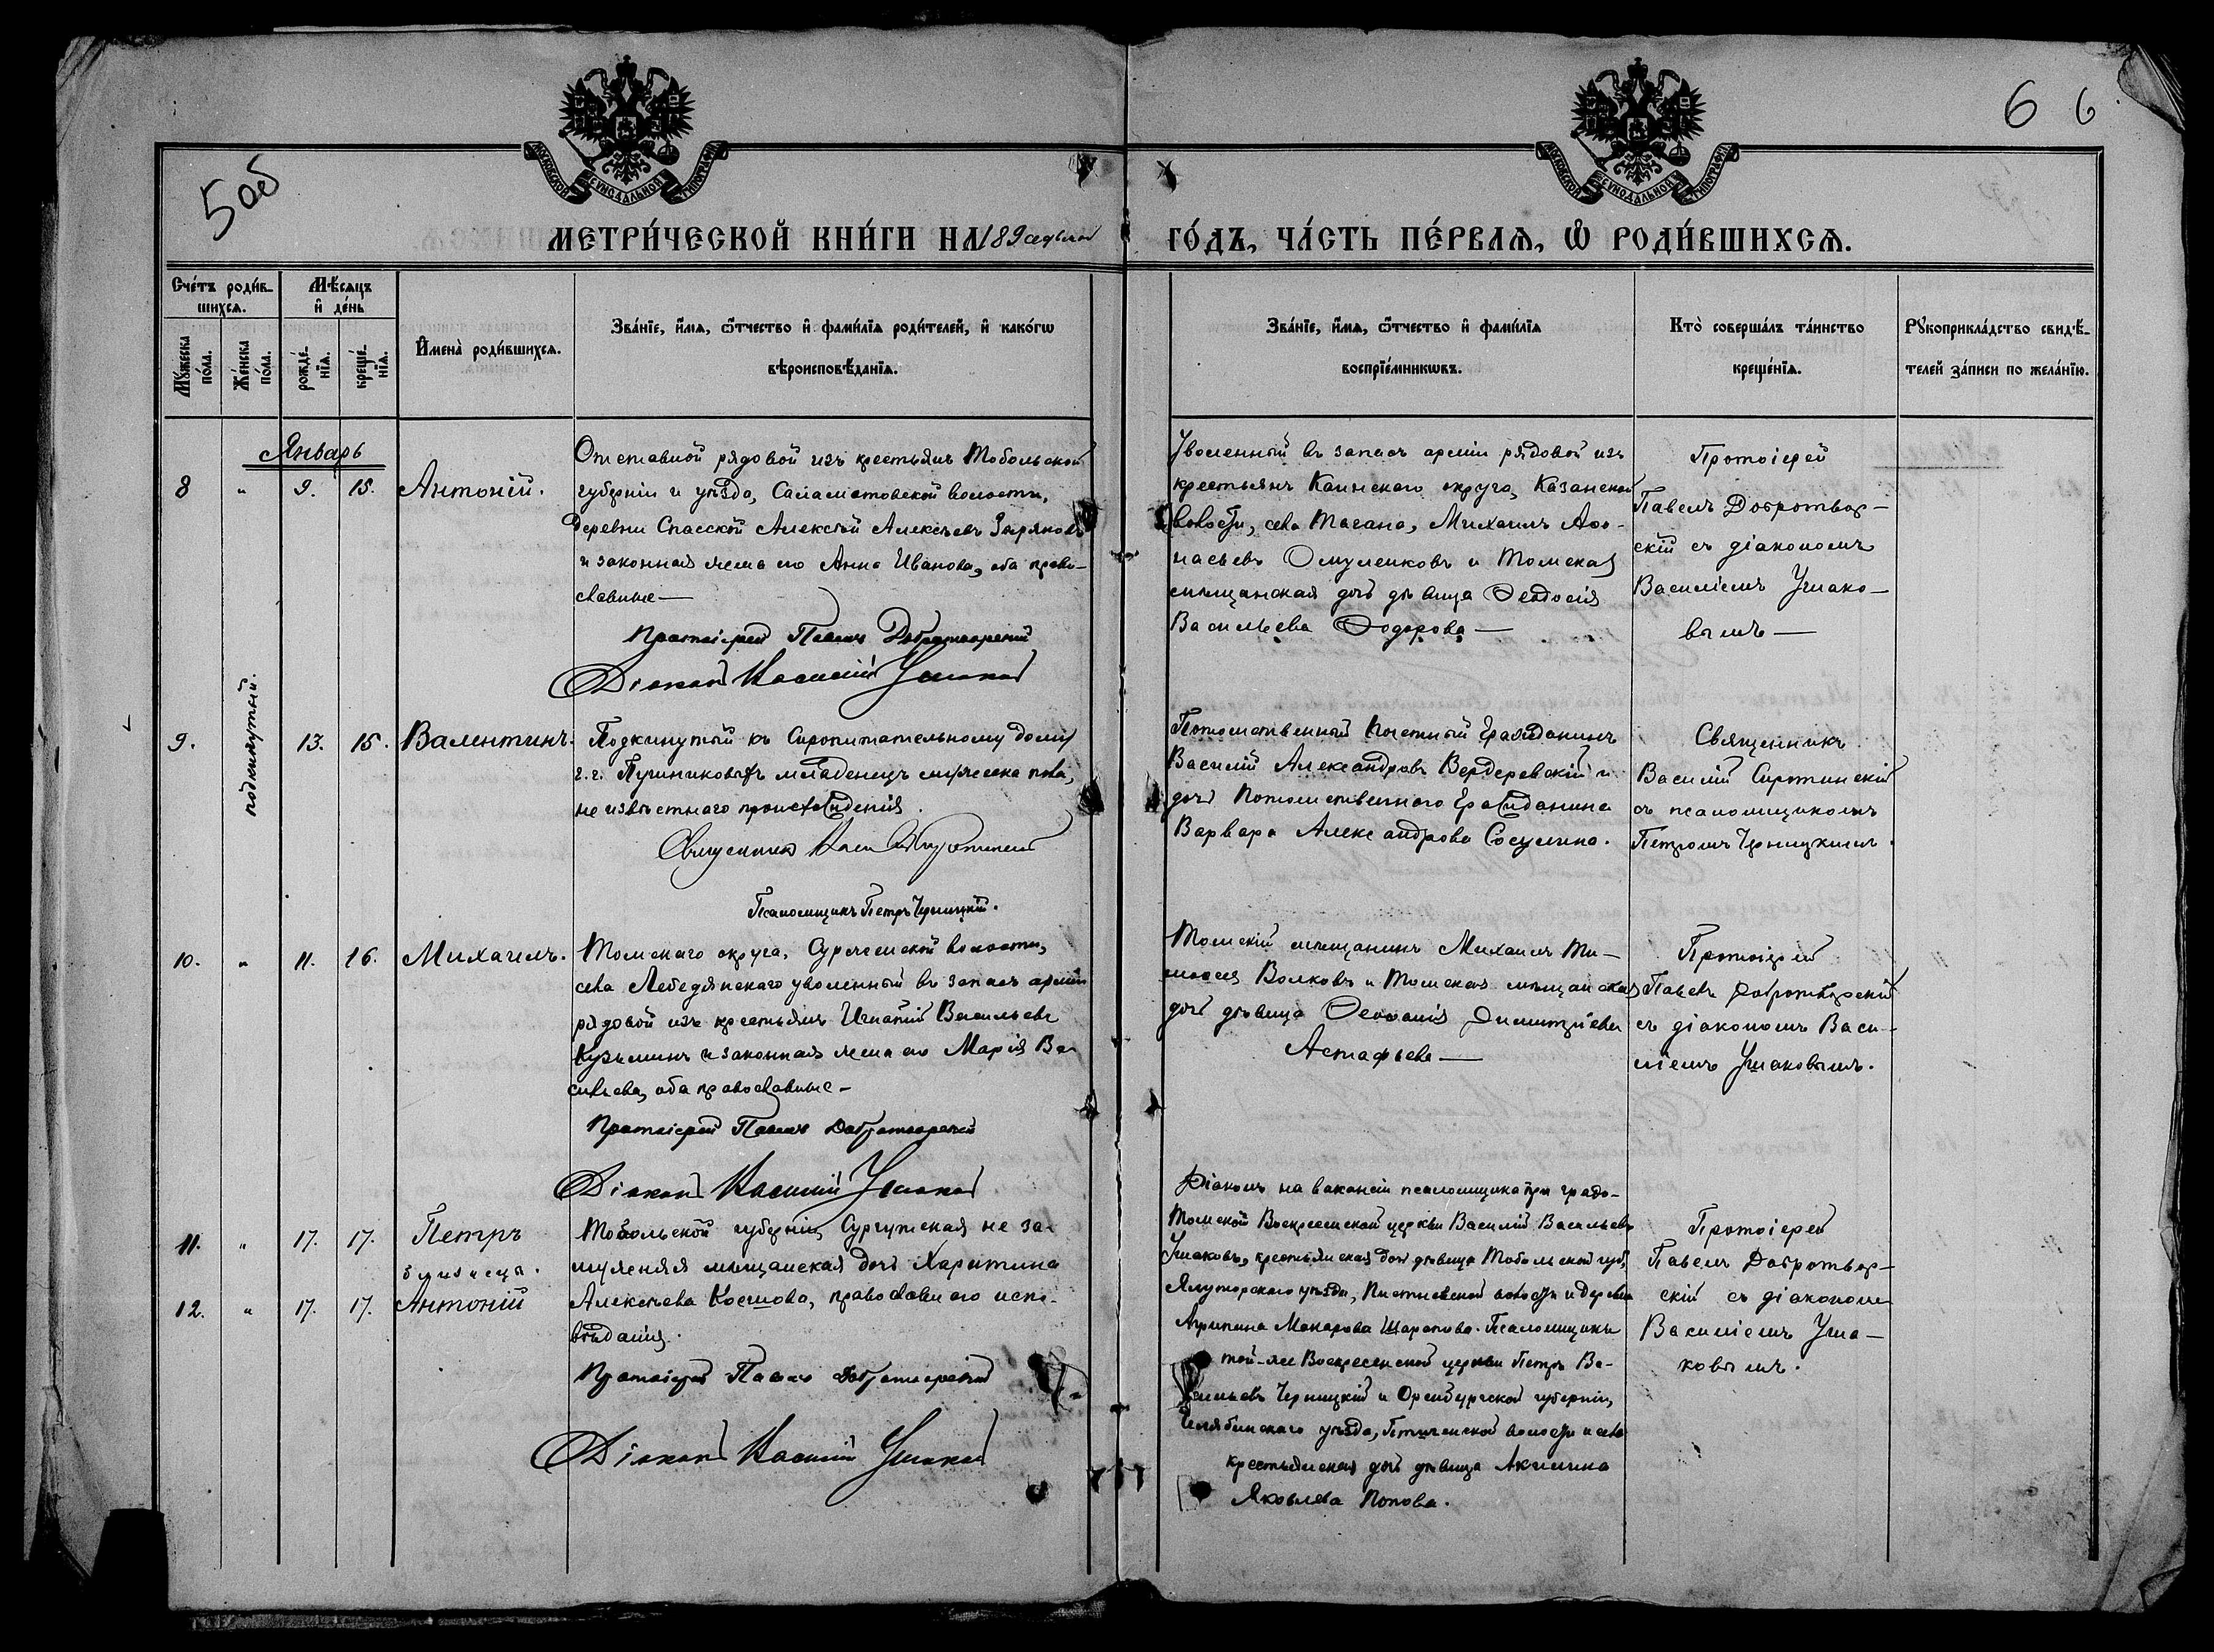 5 об
6 6
МОСКОВСКОЙ СУНОДАЛЬНОЙ ТИПОГРАФІИ
МОСКОВСКОЙ СУНОДАЛЬНОЙ ТИПОГРАФІИ
МЕТРИ́ЧЕСКОЙ КНИ́ГИ НА 189
ГО́ДЪ, ЧА́СТЬ ПЕ́РВАѦ, Ѡ҆ РОДИ́ВШИХСѦ.
Сче́тъ роди́в-
шихсѧ.
Мꙋ́жеска
по́ла.
Же́нска
по́ла.
Мѣ́сѧцъ
и҆ де́нь
рожде́-
нїѧ.
креще́-
нїѧ.
И҆мена̀ роди́вшихсѧ.
Зва́нїе, и҆́мѧ, ѻ҆́тчество и҆ фами́лїѧ роди́телей, и҆ како́гѡ
вѣроисповѣ́данїѧ.
Зва́нїе, и҆́мѧ, ѻ҆́тчество и҆ фами́лїѧ
воспрїе́мникѡвъ.
Кто̀ соверша́лъ та́инство
креще́нїѧ.
Рꙋкоприкла́дство свидѣ́-
телей за́писи по жела́нїю.
Январь
8 " 9. 15. Антоній.
Отставной рядовой изъ крестьянъ Тобольской
губерніи и уѣзда, Саламатовской волости,
деревни Спасской Алексѣй Алексѣевъ Зыряновъ
и законная жена его Анна Иванова, оба право-
славные —
Протоіерей Павелъ Добротворскій
Діаконъ Василій Ушаковъ
Уволенный въ запасъ арміи рядовой изъ
крестьянъ Каинскаго округа, Казанской
волости, села Тагана, Михаилъ Аѳо-
насьевъ Омуленковъ и Томская
мѣщанская дочь дѣвица Ѳеодосія
Васильева Ѳодорова —
Протоіерей
Павелъ Добротвор-
скій съ діакономъ
Василіемъ Ушако-
вымъ —
9. подкинутый. 13. 15. Валентинъ.
Подкинутый къ Сиропитательному дому
г.г. Пушниковыхъ младенецъ мужеска пола,
не извѣстнаго происхожденія.
Священникъ Сиротинскій
Псаломщикъ Петръ Черницкій.
Потомственный Почетный Гражданинъ
Василій Александровъ Вердеревскій и
дочь Потомственнаго Гражданина
Варвара Александрова Сосулина.
Священникъ
Василій Сиротинскій
съ псаломщикомъ
Петромъ Черницкимъ.
10. " 11. 16. Михаилъ.
Томскаго округа, волости,
села Лебедянскаго уволенный въ запасъ арміи
рядовой изъ крестьянъ Игнатій Васильевъ
Кузьминъ и законная жена его Марія Ва-
сильева, оба православные —
Протоіерей Павелъ Добротворскій
Діаконъ Василій Ушаковъ
Томскій мѣщанинъ Михаилъ Ти-
моѳеевъ Волковъ и Томская мѣщанская
дочь дѣвица Ѳеофанія Димитріева
Астафьева —
Протоіерей
Павелъ Добротворскій
съ діакономъ Васи-
ліемъ Ушаковымъ.
11. " 17. 17. Петръ
близнецы.
12. " 17. 17. Антоній
Тобольской губерніи, Сургутская не за-
мужняя мѣщанская дочь Харитина
Алексѣева Косшова, православнаго испо-
вѣданія.
Протоіерей Павелъ Добротворскій
Діаконъ Василій Ушаковъ
Діаконъ на вакансіи псаломщика при градо-
Томской Воскресенской церкви Василій Васильевъ
Ушаковъ, крестьянская дочь дѣвица Тобольской губ,
Ялуторскаго уѣзда, волости и деревни
Агрипина Макарова Шарапова. Псаломщикъ
той-же Воскресенской церкви Петръ Ва-
сильевъ Черницкій и Оренбургской губерніи,
Челябинскаго уѣзда, волости и села
крестьянская дочь дѣвица Акилина
Яковлева Попова.
Протоіерей
Павелъ Добротвор-
скій съ діакономъ
Василіемъ Уша-
ковымъ.